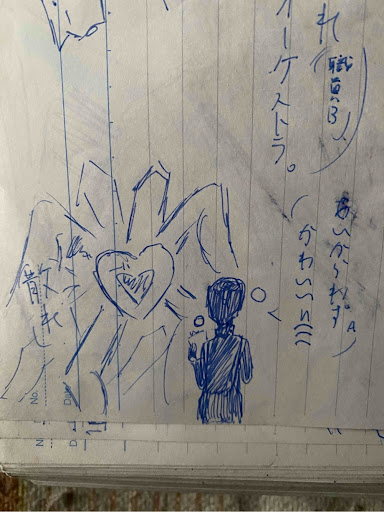 れ
(職員B
オーケストラ。
あいかわらず。
(かわいい
散れ
No.
Date